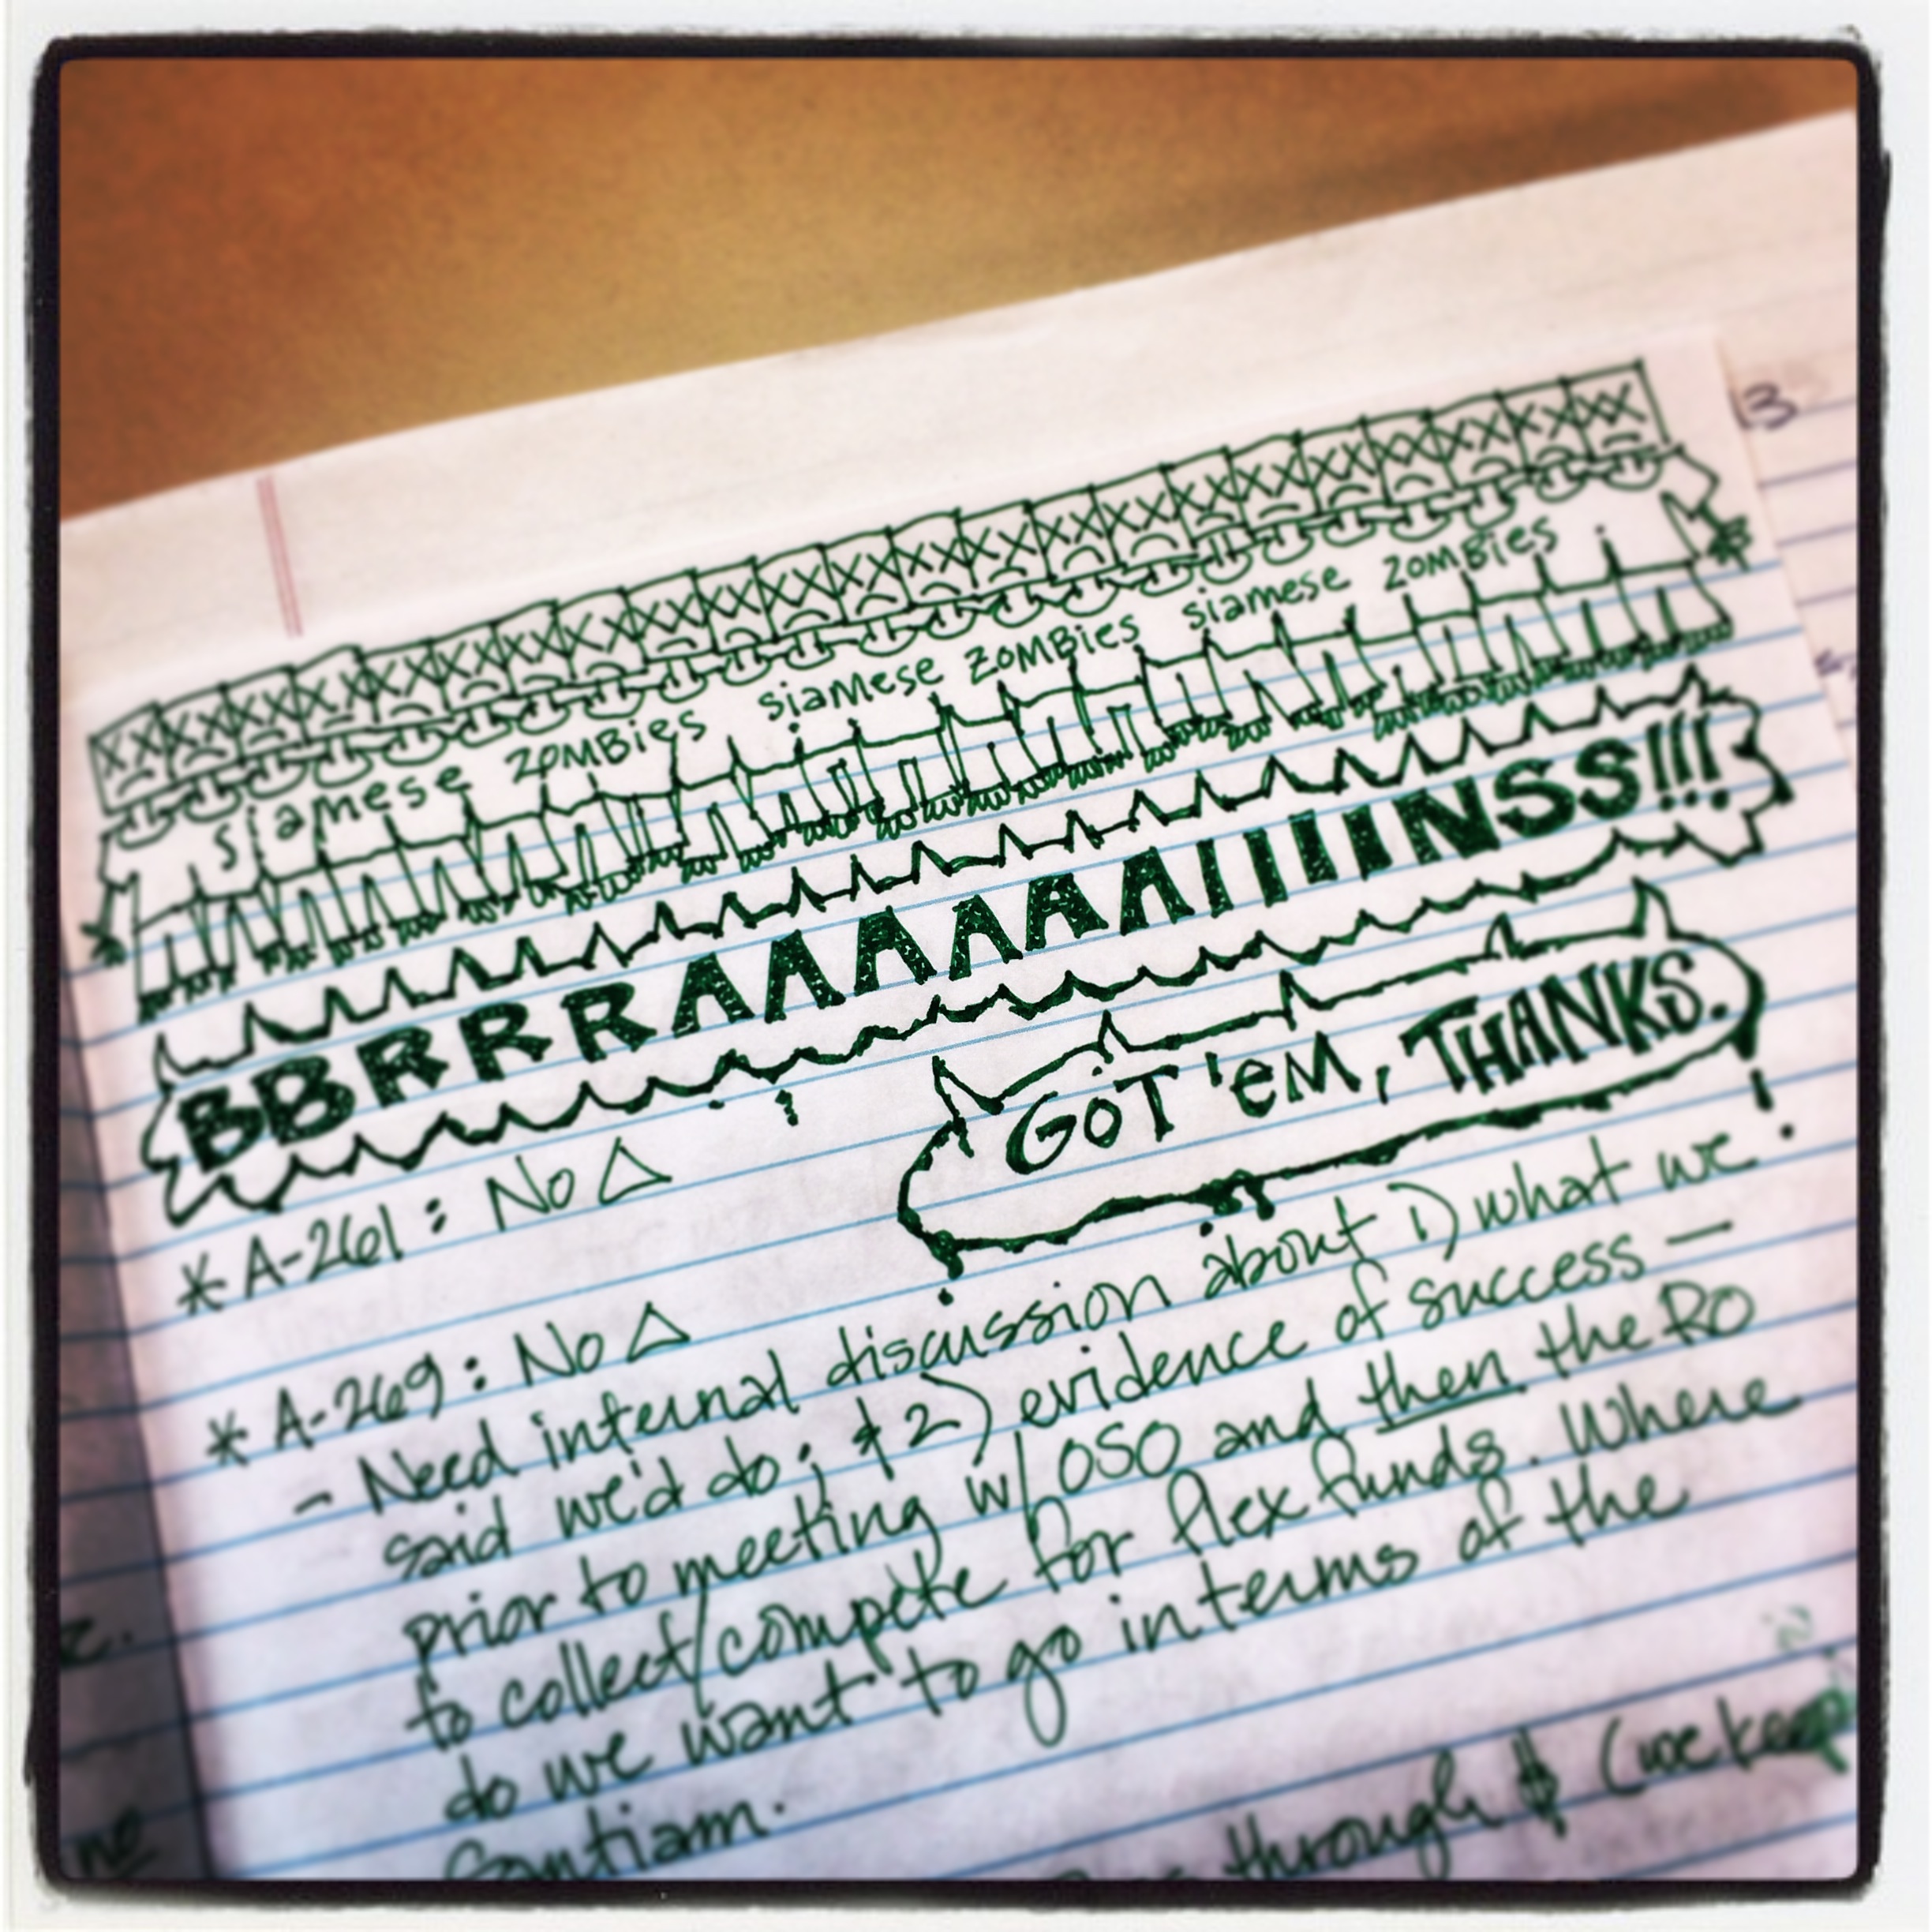 3
siamese ZOMBies siamese ZOMBies siamese ZOMBies
BBRRRRAAAAAAIIIINSS!!!
GOT 'EM, THANKS.
* A-261 : No △
* A-269 : No △
- Need internal discussion about 1) what we
said we'd do ; & 2) evidence of success —
prior to meeting w/ OSO and then the RO
to collect/compete for flex funds. Where
do we want to go in terms of the
Santiam.
through $ (we keep
no